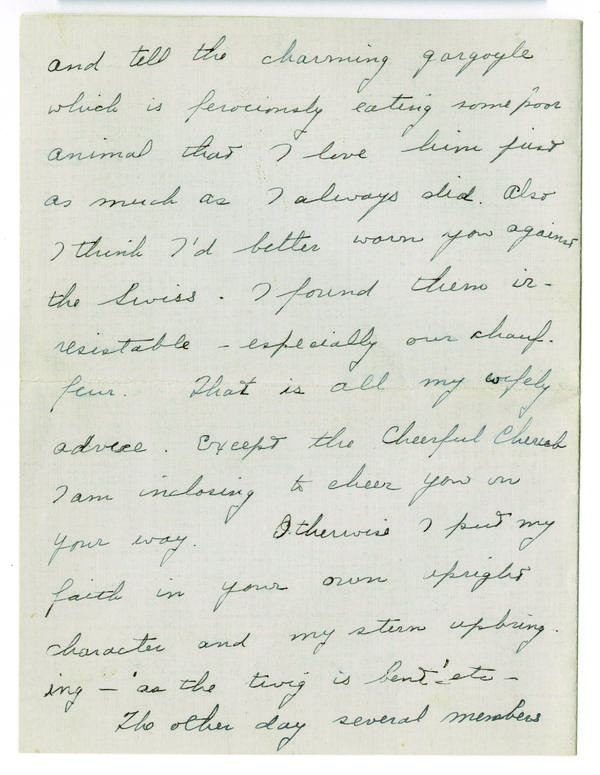 and tell the charming gargoyle
which is ferociously eating some poor
animal that I love him just
as much as I always did. Also
I think I'd better warn you against
the Swiss. I found them ir-
resistable - especially our chauf-
feur. That is all my wifely
advice. Except the Cheerful Cherub
I am inclosing to cheer you on
your way. Otherwise I put my
faith in your own upright
character and my stern upbring-
ing - 'as the twig is bent' etc -
The other day several members